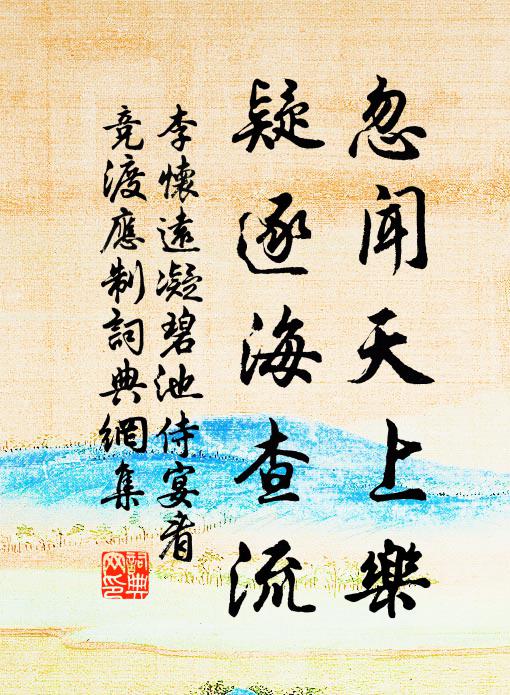 忽聞天上樂
疑逐海查流
李懷遠凝碧池侍宴看
競渡應制詞典網集